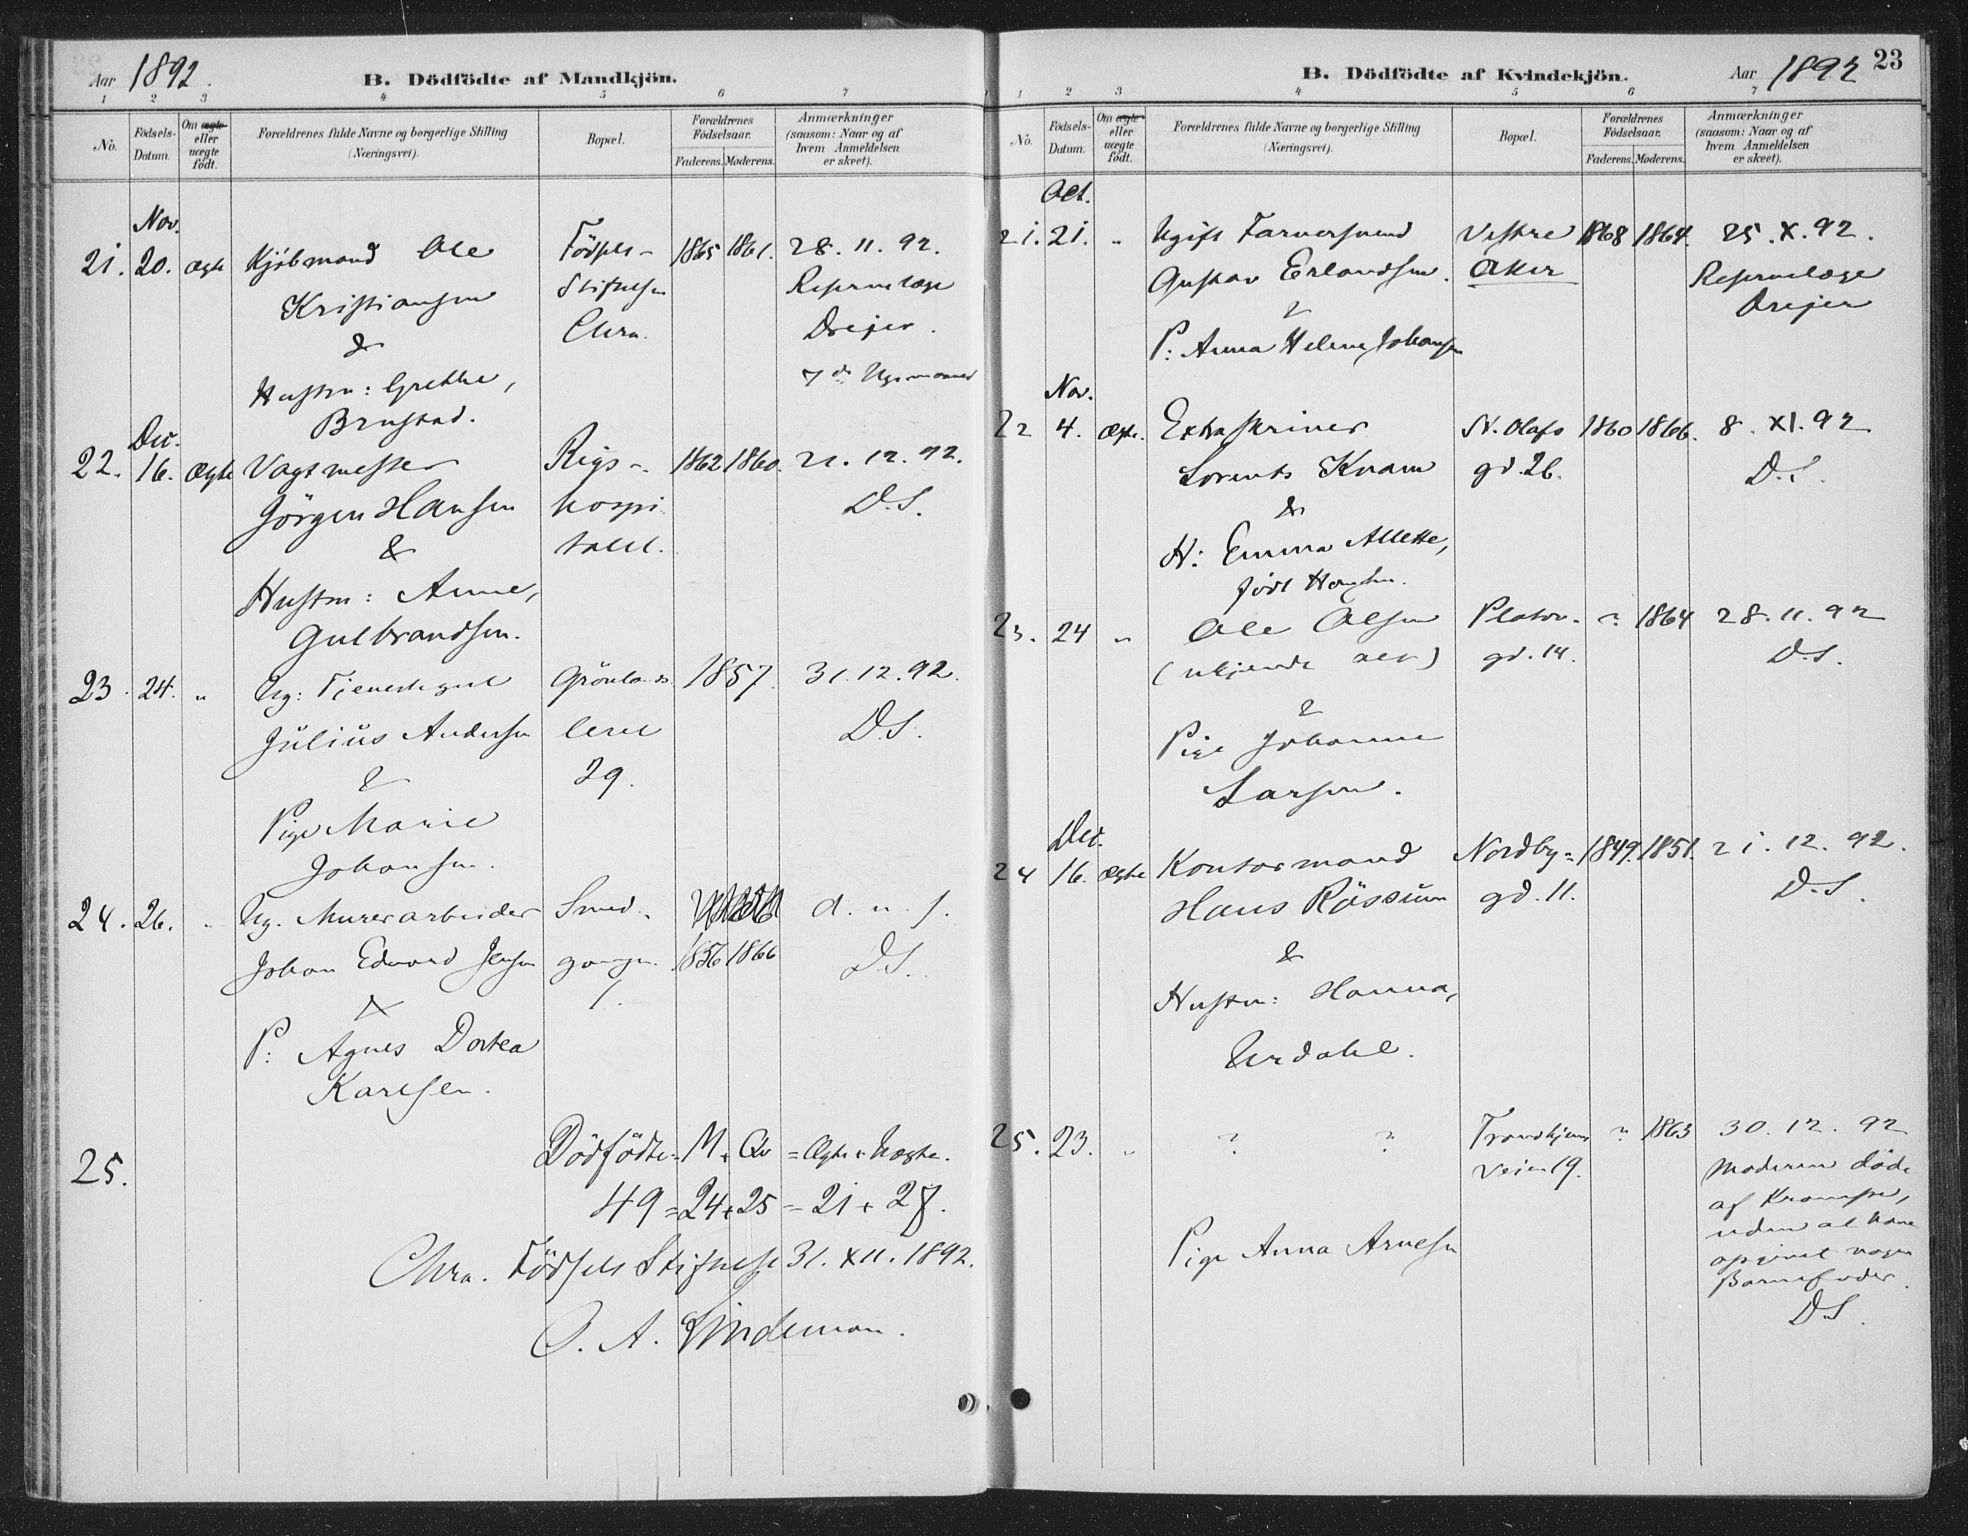 Aar 1892.
B. Dödfödte af Mandkjön.
1 2 3 4 5 6 7
No.
Födsels-Datum.
Om ægte eller uægte født.
Forældrenes fulde Navne og borgerlige Stilling (Næringsvei).
Bopæl.
Forældrenes Födselsaar.
Faderens. Moderens.
Anmærkninger (saasom: Naar og af hvem Anmeldelsen er skeet).
Nov.
21. 20. ægte Kjöbmand Ole Födsels- 1865 1861. 28. 11. 92.
Kristiansen Stiftelsen Reservelæge
& Chra. Drejer.
Hustru: Grethe, 7de
Brustad.
Dec.
22. 16. Ægte Vagtmester Rigs- 1862 1860. 21. 12. 92.
Jörgen Hansen hospi D.S.
& talet.
Hustru: Anne,
Gulbrandsen.
23. 24. " Ug: Tjenestegut Grönlands 1857. 31. 12. 92.
Julius Andersen leret D.S.
& 29.
Pige Marie
Johansen.
24. 26. " Ug. Murerarbeider Smed- d. u. s.
Johan Edvard Jensen gangen 1856 1866 D.S.
& 1.
P: Agnes Dortea
Karlsen.
25. Dödfödte = M + Qv = Ægte + Uægte.
49 = 24 + 25 = 21 + 28.
Chra. Födsels Stiftelse 31. XII. 1892.
C. A. Lindeman.
23
B. Dödfödte af Kvindekjön.
Aar 1892
1 2 3 4 5 6 7
No.
Födsels-Datum.
Om ægte eller uægte født.
Forældrenes fulde Navne og borgerlige Stilling (Næringsvei).
Bopæl.
Forældrenes Födselsaar.
Faderens. Moderens.
Anmærkninger (saasom: Naar og af hvem Anmeldelsen er skeet).
Oct.
21. 21. " Ugift Farversvend Vestre 1868 1864. 25. X. 92.
Gustav Erlandsen. Aker Reservelæge
& Drejer
P: Anna Helene Johansen
Nov.
22 4. Ægte. Extraskriver St. Olafs 1860 1866. 8. XI. 92
Lorents Knam gd. 26. D.S.
&
H: Emma Alette,
född Hansen.
23. 24 " Ole Olsen Platou- ? 1864 28. 11. 92
(ukjendt alder) gd. 14. D.S.
&
Pige Johanne
Larsen.
Dec.
24 16. ægte Kontormand Nordby- 1849. 1851. 21. 12. 92.
Hans Rössum gd. 11. D.S.
&
Hustru: Hanna,
Urdahl.
25. 23. " ? ? Trondhjems ? 1863 30. 12. 92
Veien 19. Moderen döde
af Krampe,
Pige Anna Arnesen uden at have
opgivet nogen
Barnefader.
D.S.